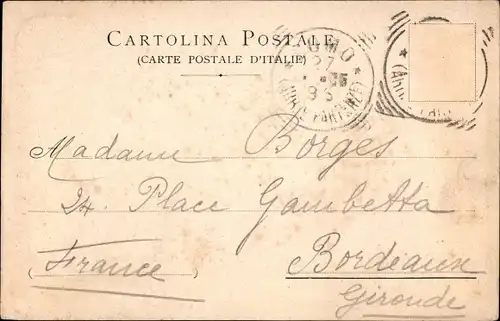 CARTOLINA POSTALE
(CARTE POSTALE D'ITALIE)
Madame Borges
24. Place Gambetta
(France)
Bordeaux
Gironde